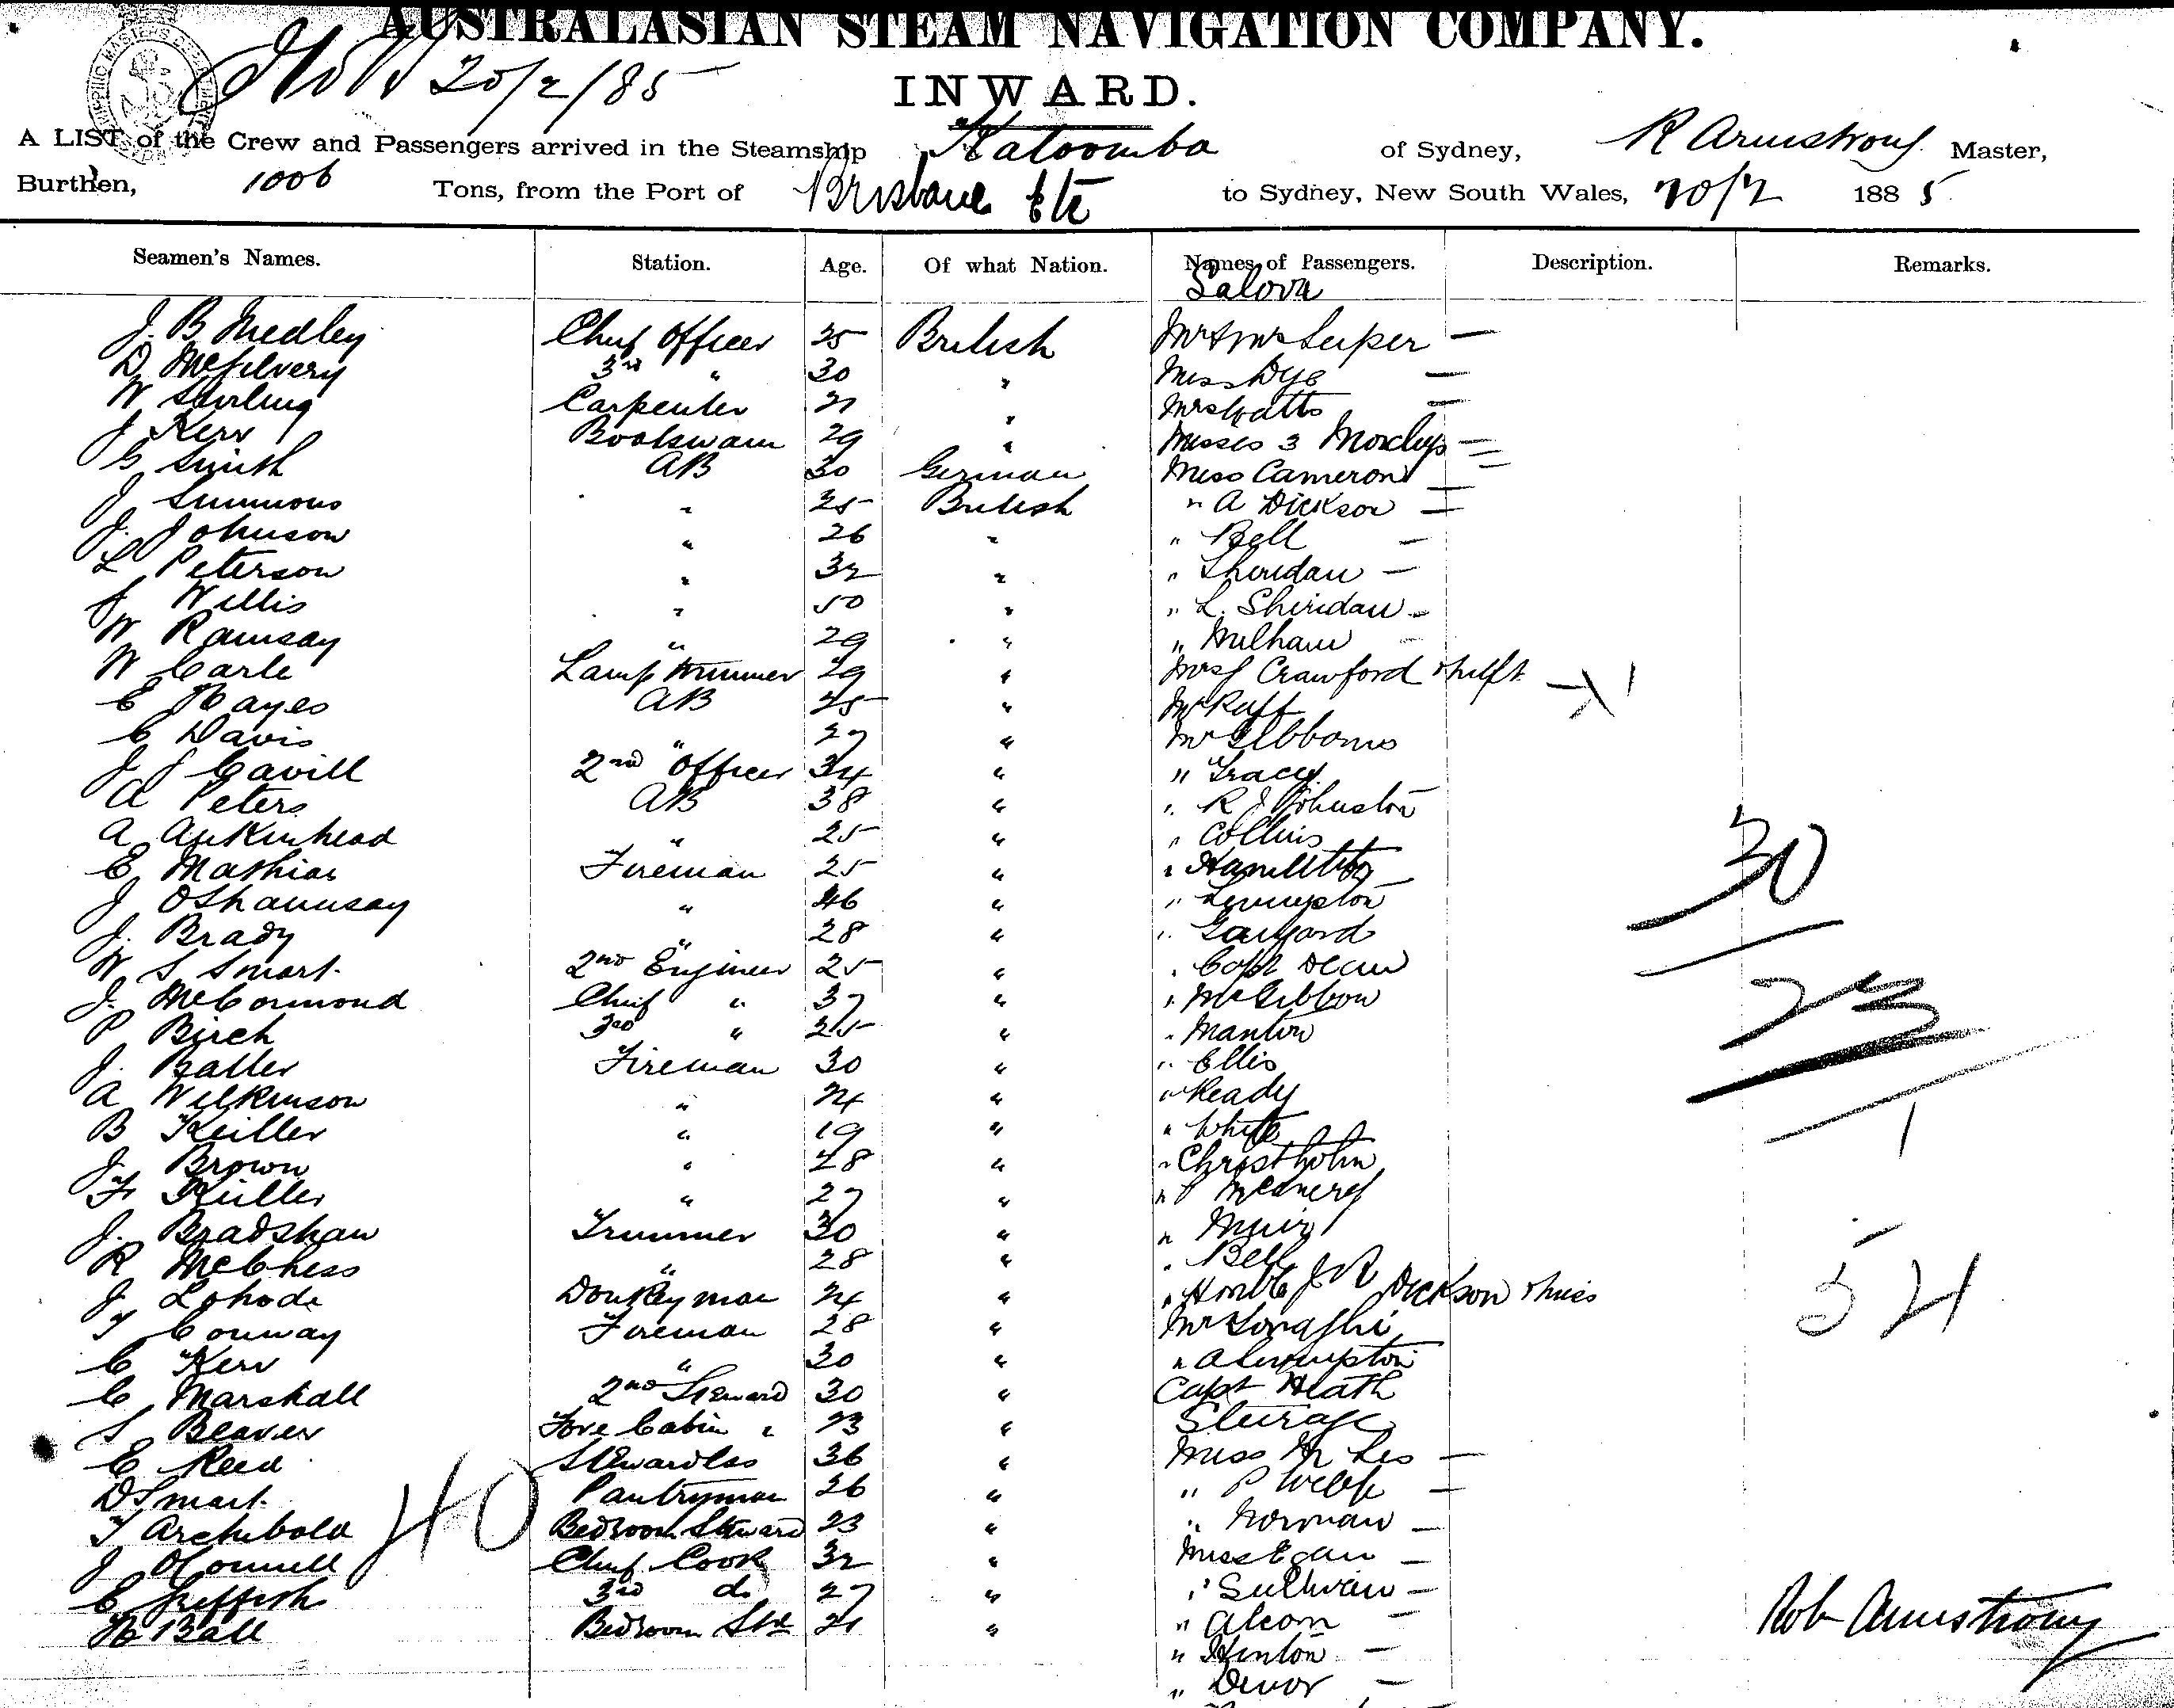 AUSTRALASIAN STEAM NAVIGATION COMPANY.
20/2/85
INWARD.
A LIST of the Crew and Passengers arrived in the Steamship Katoomba of Sydney, R Armstrong Master,
Burthen, 1006 Tons, from the Port of Brisbane Etc to Sydney, New South Wales, 20/2 1885
Seamen's Names. Station. Age. Of what Nation. Names of Passengers. Description. Remarks.
Saloon
J. B Medley Chief Officer 35 British Mr & Mrs Leiper —
D McGilvery 3rd " 30 " Miss Dye —
W Starling Carpenter 21 " Mrs Watts —
J Kerr Boatswain 29 " Misses 3 Moxleys —
G Smith AB 30 German Miss Cameron —
J Simmons " 25 British " A Dickson —
J. Johnson " 26 " " Bell —
L Peterson " 32 " " Sheridan —
J Willis " 50 " " L. Sheridan —
W Ramsay " 29 " " Milham —
W Carle Lamp Trimmer 29 " Mrs Crawford & Inft
E Hayes AB 25 " Mr Raff
C Davis " 27 " Mr Gibbons
J J Cavill 2nd Officer 34 " " Tracey
A Peters AB 38 " " R J Johnston
A Aikenhead " 25 " " Collins
E Mathias Fireman 25 " " Hamilton
J OShannsay " 46 " " Livingston
J. Brady " 28 "
W. S Smart 2nd Engineer 25 " " Capt Dean
J. McCormond Chief " 37 " " McGibbon
P Birch 3rd " 25 " " Manton
J. Baller Fireman 30 " " Ellis
A Wilkinson " 24 " " Ready
B Keiller " 19 " " White
J. Brown " 28 " " Christholm
F Keiller " 27 "
J. Bradshaw Trimmer 30 " " Muir
R McChess " 28 " " Bell
J. Lohode Donkeyman 24 " " Honble J R Dickson & Miss
T Conway Fireman 28 " Mr
C Kerr " 30 "
C Marshall 2nd Steward 30 " Capt Heath
S Beaver Fore Cabin " 23 " Steerage
E Reed Stewardess 36 " Miss M Les —
D Smart Pantryman 26 " " P Webb —
T Archibald Bedroom Steward 23 " " Norman —
J OConnell Chief Cook 32 " Miss Egan —
E Griffith 3rd do 27 " " Sullivan —
H Ball Bedroom Std 21 " " Alcorn —
" Hinton —
" Devor —
30
23
1
54
40
Rob Armstrong